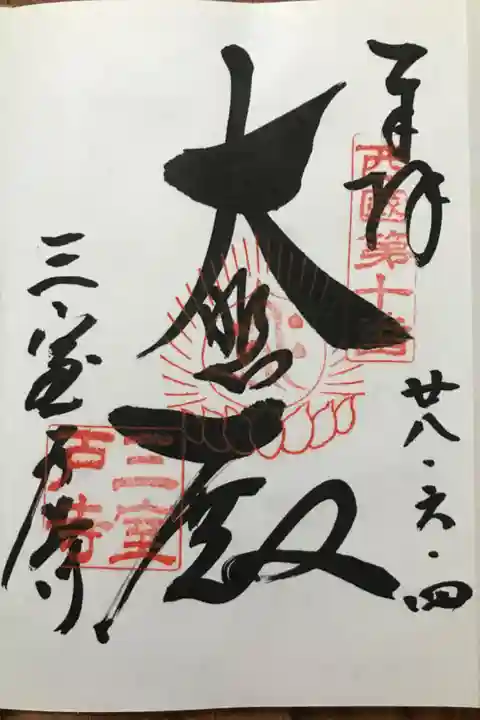 奉拝
西國第十番
廿八・六・四
大悲殿
三室戸寺
三室
戸寺